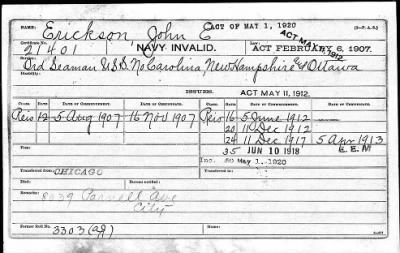 NAME: Erickson John E ACT OF MAY 1, 1920
CERTIFICATE NO. 21401 NAVY INVALID. ACT FEBRUARY 6, 1907. ACT MAY 11, 1912.
Ord Seaman U.S.S. No Carolina, New Hampshire & Ottawa
ISSUES. ACT MAY 11, 1912.
CLASS. RATE. DATE OF COMMENCEMENT. DATE OF CERTIFICATE. CLASS. RATE. DATE OF COMMENCEMENT. DATE OF CERTIFICATE.
Reis 12 5 Aug 1907 16 Nov 1907 Reis 16 5 June 1912
20 11 Dec 1912
24 11 Dec 1917 5 Apr 1913
35 JUN 10 1918 E.E.M
Inc. 50 May 1, 1920
Transferred from CHICAGO
Died
Remarks: 8039 Parnell Ave
City
Former Roll No. 3303